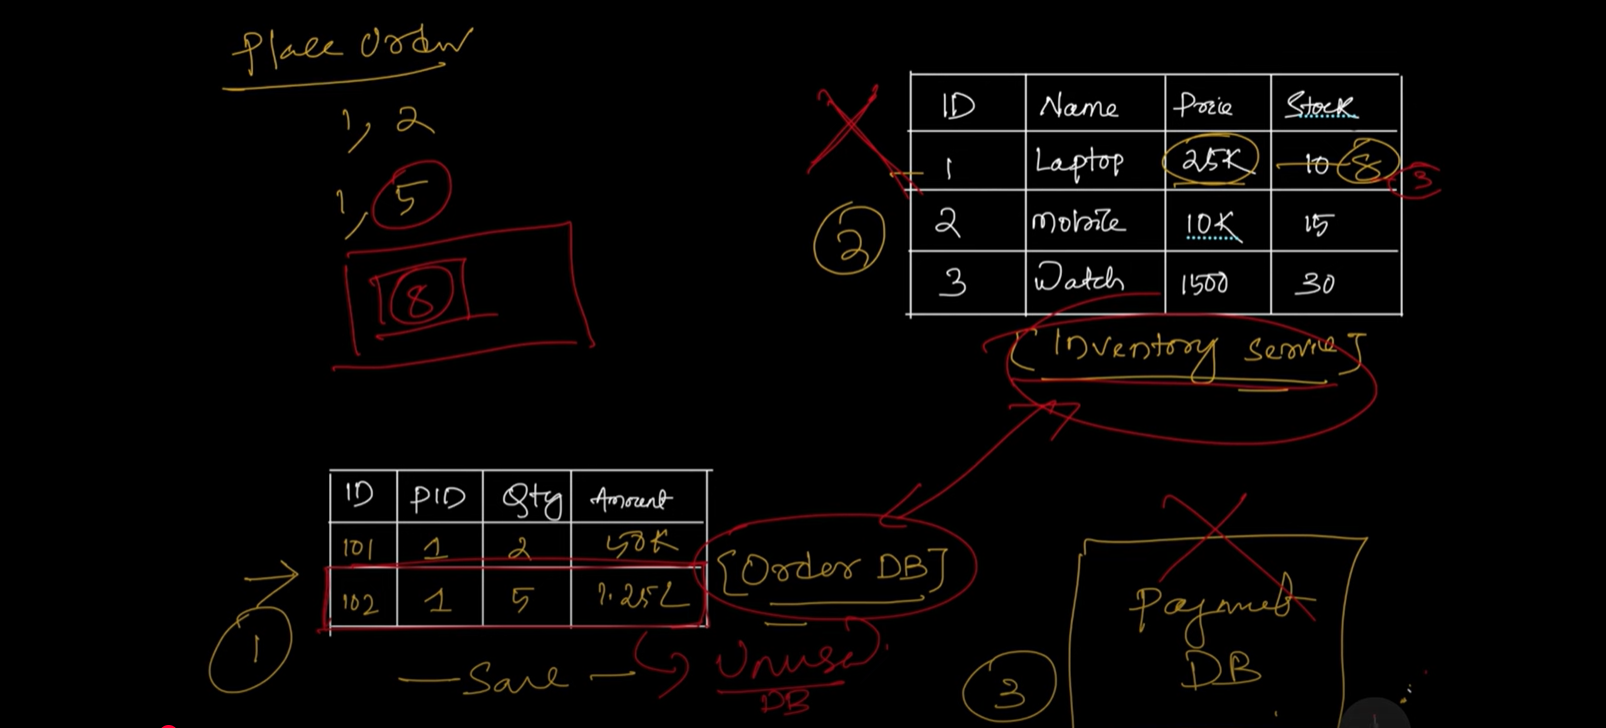 Place Order
1, 2
1, 5
8
ID Name Price Stock
1 Laptop 25K 10 8 3
2 Mobile 10K 15
3 Watch 1500 30
2
[Inventory Service]
ID PID Qty Amount
101 1 2 50K
102 1 5 1.25L
[Order DB]
1
Save
Unused
DB
3
Payment
DB